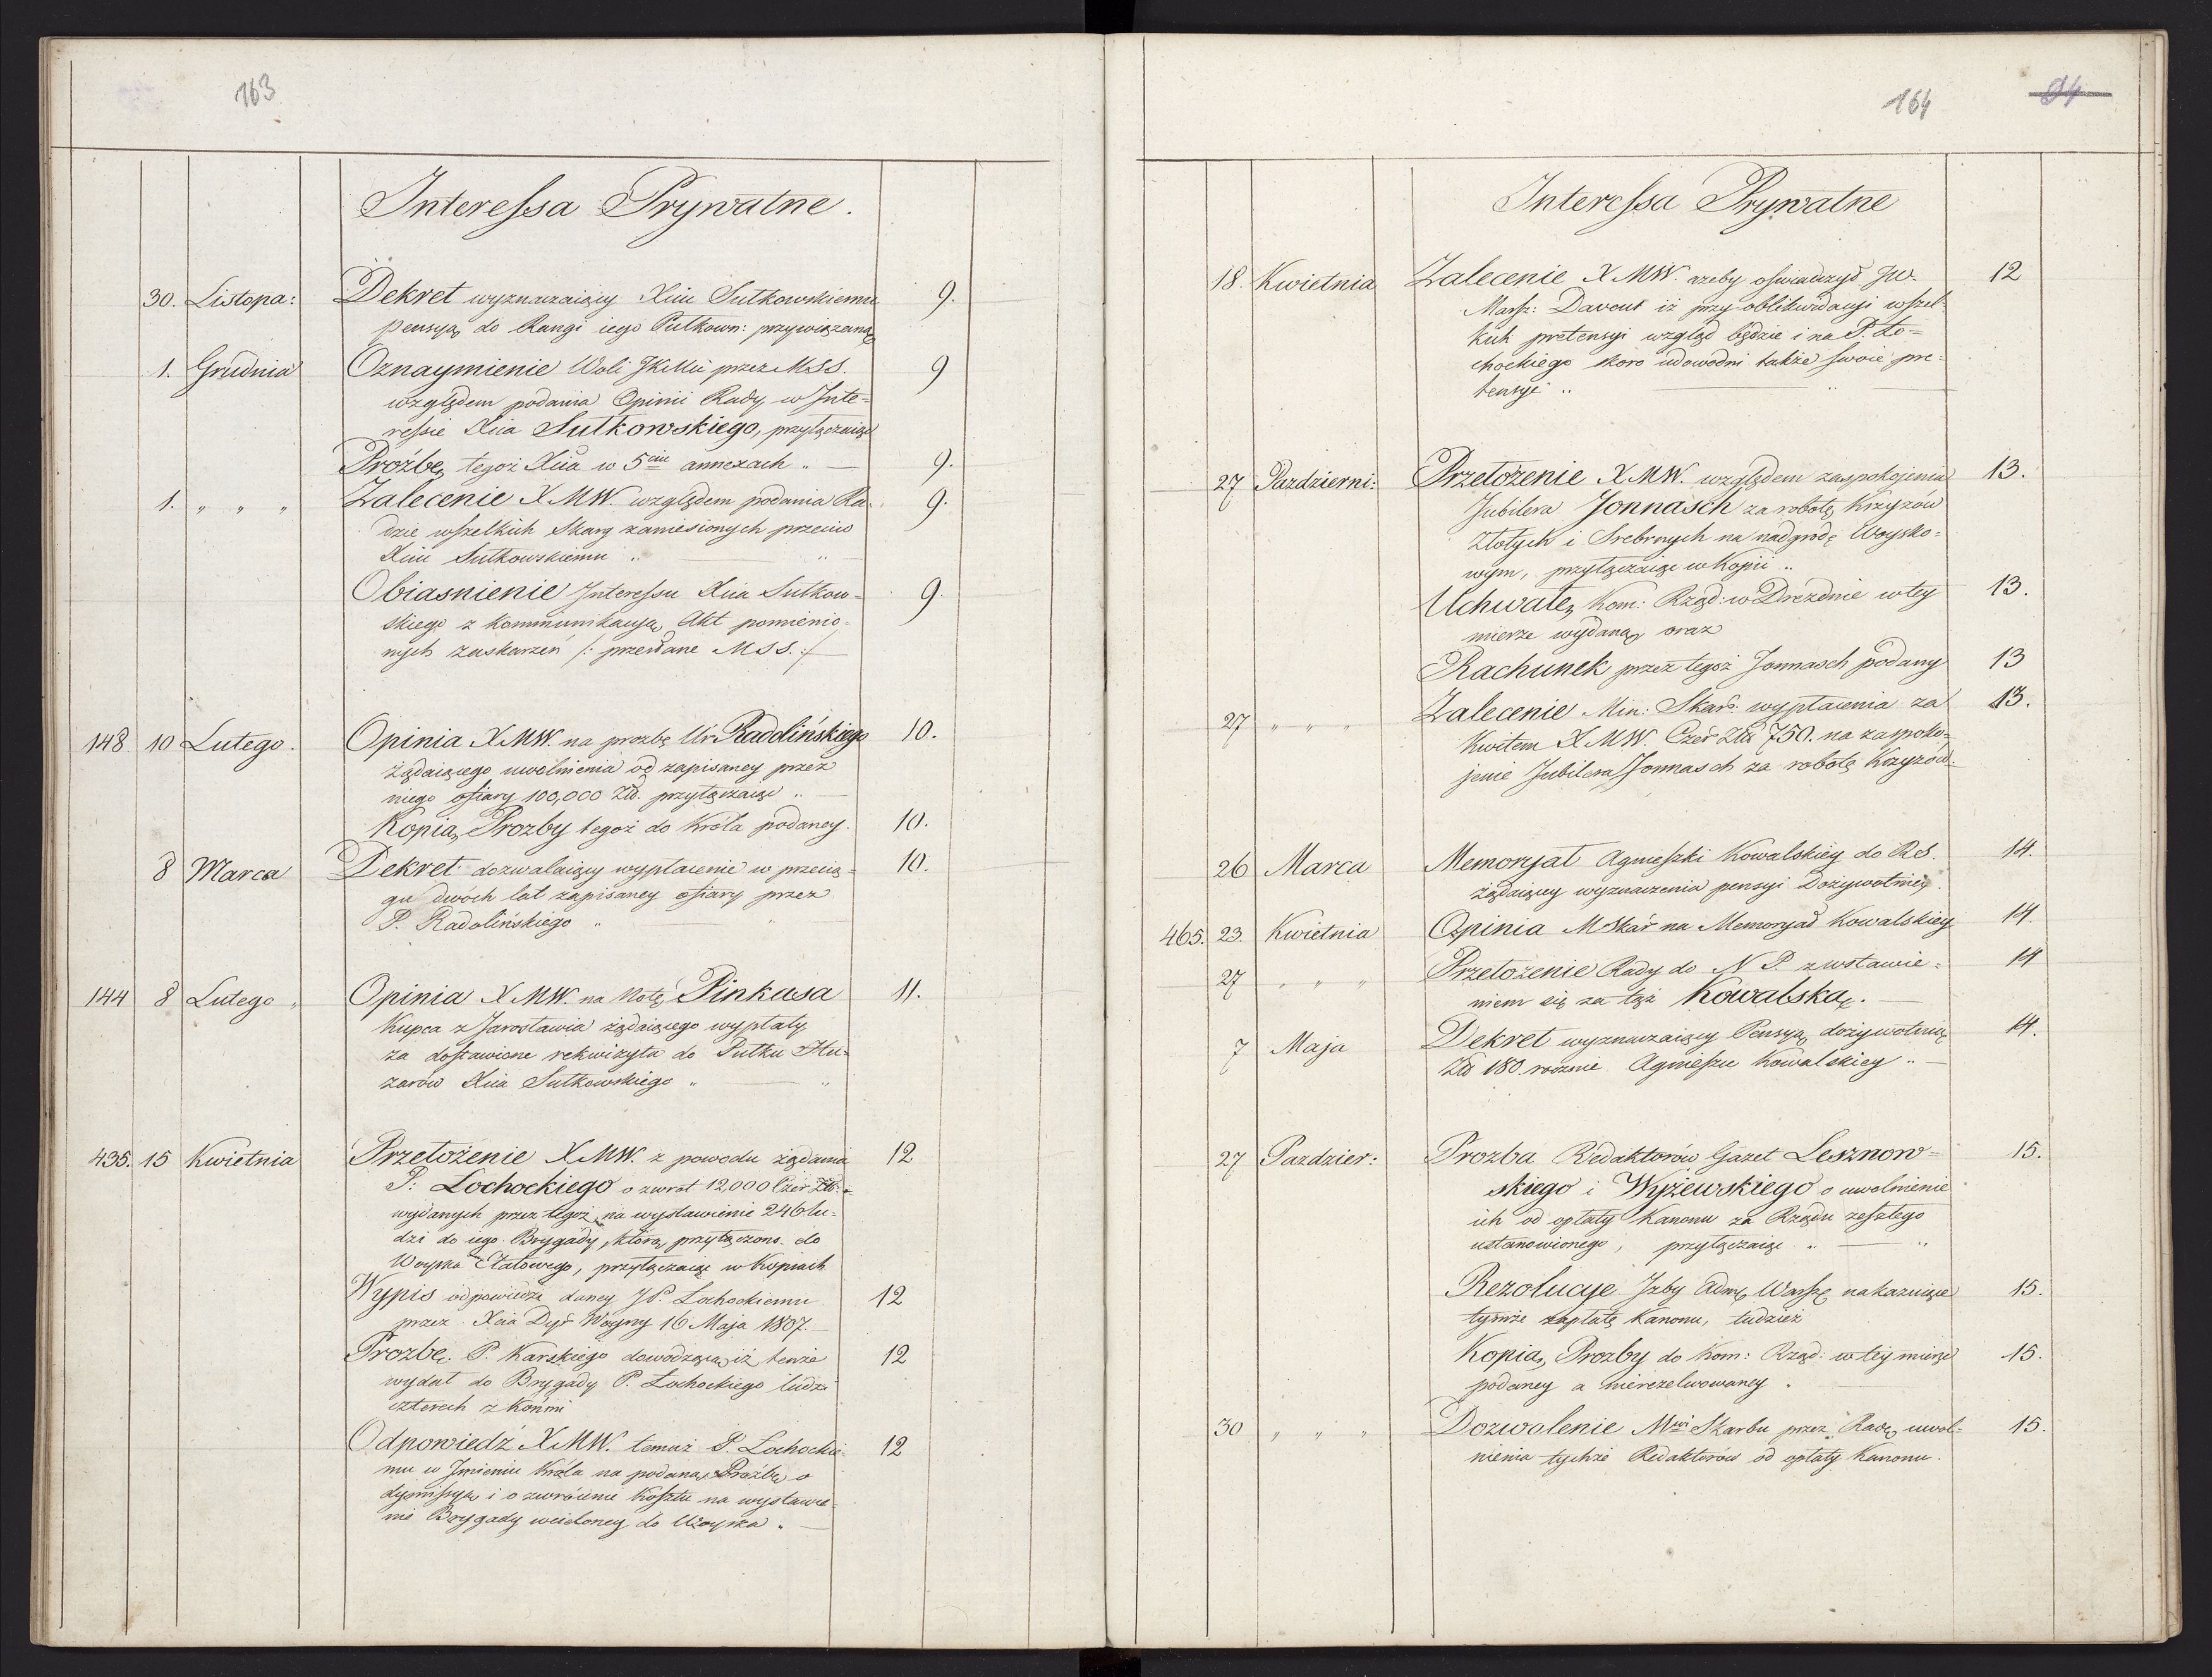 163
Interessa Prywatne.
30. Listopa: Dekret wyznaczaiący Xciu Sułkowskiemu 9.
pensyą do Rangi iego Pułkown: przywiązaną
1. Grudnia Oznaymienie Woli JKMci przez MSS. 9
względem podania Opinii Rady w Inte=
ressie Xcia Sułkowskiego, przyłączaiąc
Proźbę tegoż Xcia w 5ciu annexach „ — 9.
1. „ „ „ Zalecenie XMW. względem podania Ra= 9.
dzie wszelkich Skarg zaniesionych przeciw
Xciu Sułkowskiemu „ — „
Obiasnienie Interessu Xcia Sułkow= 9.
skiego z kommunikacyą Akt pomienio=
nych zaskarzeń /: przesłane MSS. :/
148 10 Lutego. Opinia XMW. na prozbę Ur. Radolińskiego 10.
żądaiącego uwolnienia od zapisaney przez
niego ofiary 100,000 Złł. przyłączaiąc „ —
Kopią Prozby tegoż do Króla podaney. 10.
8 Marca Dekret dozwalaiący wypłacenie w przecią= 10.
gu dwóch lat zapisaney ofiary przez
P. Radolińskiego „ — „
144 8 Lutego „ Opinia XMW. na Notę Pinkasa 11.
Kupca z Jarosławia żądaiącego wypłaty
za dostawione rekwizyta do Pułku Hu=
zarów Xcia Sułkowskiego „ — „
435. 15 Kwietnia Przełożenie XMW. z powodu żądania 12
P: Łochockiego o zwrot 12,000 Czer Złł.
wydanych przez tegoż na wystawienie 246 lu=
dzi do iego Brygady, którą przyłączono do
Woyska Etatowego, przyłączaiąc w Kopiach
Wypis odpowiedzi daney JP. Łochockiemu 12
przez Xcia Dyr Woyny 16 Maja 1807. —
Prozbę P. Karskiego dowodzącą iż tenże 12
wydał do Brygady P. Łochockiego ludzi
czterech z końmi
Odpowiedź XMW. temuż P. Łochockie= 12
mu w Imieniu Króla na podaną Proźbę o
dymissyą i o zwrócenie kosztu na wystawie=
nie Brygady wcieloney do Woyska „ —
164 94
Interessa Prywatne
18. Kwietnia Zalecenie XMW. azeby oświadczył JW. 12
Marsz: Davout iż przy oblikwidacyi wszel=
kich pretensyi wzgląd będzie i na P. Ło=
chockiego skoro udowodni także swoie pre=
tensye „ — „ —
27 Pazdzierni: Przełożenie XMW. względem zaspokojenia 13.
Jubilera Jonnasch za robotę Krzyzów
Złotych i Srebrnych na nadgrodę Woysko=
wym, przyłączaiąc w Kopii „
Uchwałę Kom: Rząd: w Drezdnie w tey 13.
mierze wydaną oraz
Rachunek przez tegoż Jonnasch podany 13
27 „ „ „ Zalecenie Min: Skarb: wypłacenia za 13.
Kwitem XMW. Czer Złł 750. na zaspoko=
jenie Jubilera Jonnasch za robotę Krzyzów.
26 Marca Memoryał Agnieszki Kowalskiey do RS. 14.
żądaiącey wyznaczenia pensyi Dożywotniey.
465. 23. Kwietnia Opinia MSkar na Memoryał Kowalskiey 14.
27 „ „ „ Przełożenie Rady do NP. z wstawie= 14
niem się za tąż Kowalską. —
7 Maja Dekret wyznaczaiący Pensyą dożywotnią 14.
Złł 180. rocznie Agnieszce Kowalskiey „ —
27 Pazdzier: Prozba Redaktorów Gazet Lesznow= 15.
skiego i Wyżewskiego o uwolnienie
ich od opłaty Kanonu za Rządu zeszłego
ustanowionego, przyłączaiąc „ — „
Rezolucye Izby Admą Warszą nakazuiące 15.
tymże zapłatę Kanonu, tudzież
Kopią Prozby do Kom: Rząd: w tey mierze 15.
podaney a nierezolwowaney „ —
30 „ „ „ Dozwolenie Mwi Skarbu przez Radę uwol= 15.
nienia tychże Redaktorów od opłaty Kanonu.